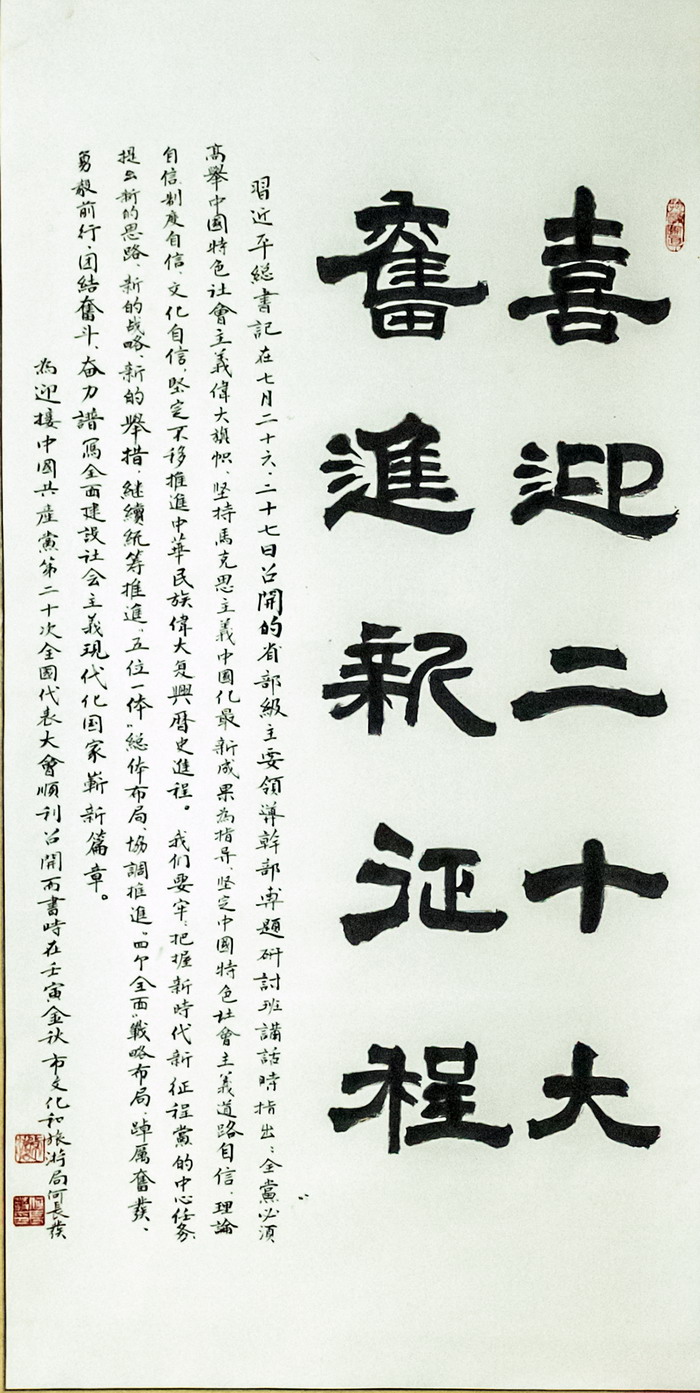 喜迎二十大
奮進新征程
習近平總書記在七月二十六、二十七日召開的省部級主要領導幹部專題研討班講話時指出：全黨必須
高舉中國特色社會主義偉大旗幟、坚持馬克思主義中國化最新成果為指导、坚定中國特色社會主義道路自信、理論
自信、制度自信、文化自信，坚定不移推進中華民族偉大复興歷史進程。我们要牢、把握新時代新征程黨的中心任务
提出新的思路、新的战略、新的舉措，継續統筹推進“五位一体”總体布局、協調推進“四个全面”戰略布局，踔厲奮發、
勇毅前行、团结奮斗，奋力譜寫全面建設社会主義現代化国家嶄新篇章。
為迎接中國共產黨第二十次全國代表大會順利召開而書時在壬寅金秋市文化和旅游局何長發